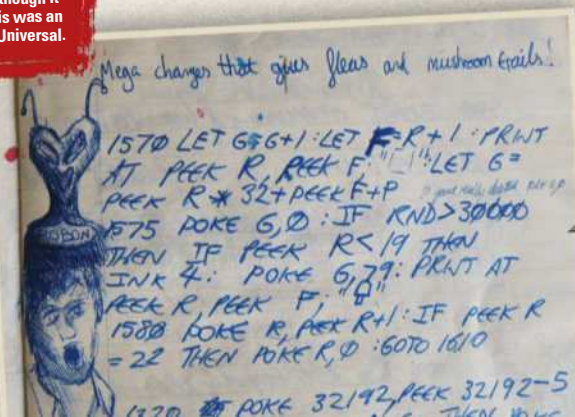 though it
is was an
Universal.
Mega changes that gives fleas and mushroom trails!
1570 LET G=G+1:LET F=R+1:PRINT
AT PEEK R, PEEK F;"␣":LET G=
PEEK R*32+PEEK F+P
1575 POKE G,0:IF RND>30000
THEN IF PEEK R<19 THEN
INK 4: POKE G,79: PRINT AT
PEEK R, PEEK F;
1580 POKE R, PEEK R+1: IF PEEK R
=22 THEN POKE R,0:GOTO 1610
ROBON
1320 POKE 32192,PEEK 32192-5
THEN POKE